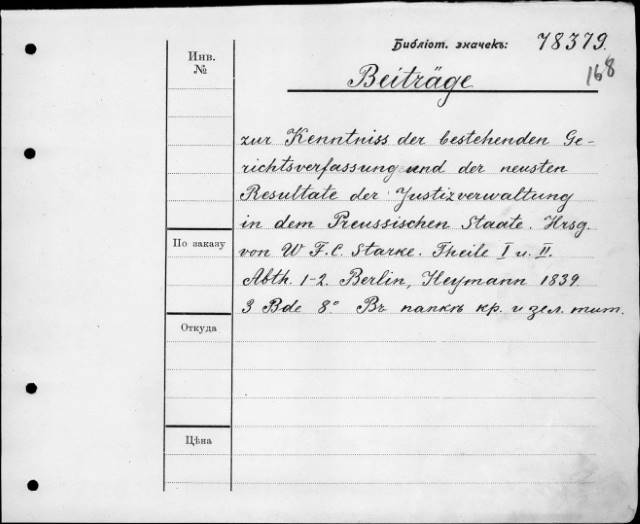 Библіот. значекъ: 78379.
168
Инв.
№
Beiträge
zur Kenntniss der bestehenden Ge-
richtsverfassung und der neusten
Resultate der Justizverwaltung
in dem Preussischen Staate. Hrsg.
По заказу
von W F.C. Starke. Theile I u. II.
Abth. 1-2. Berlin, Heymann 1839.
3 Bde 8° Въ папкѣ кр. и зел. тит.
Откуда
Цѣна